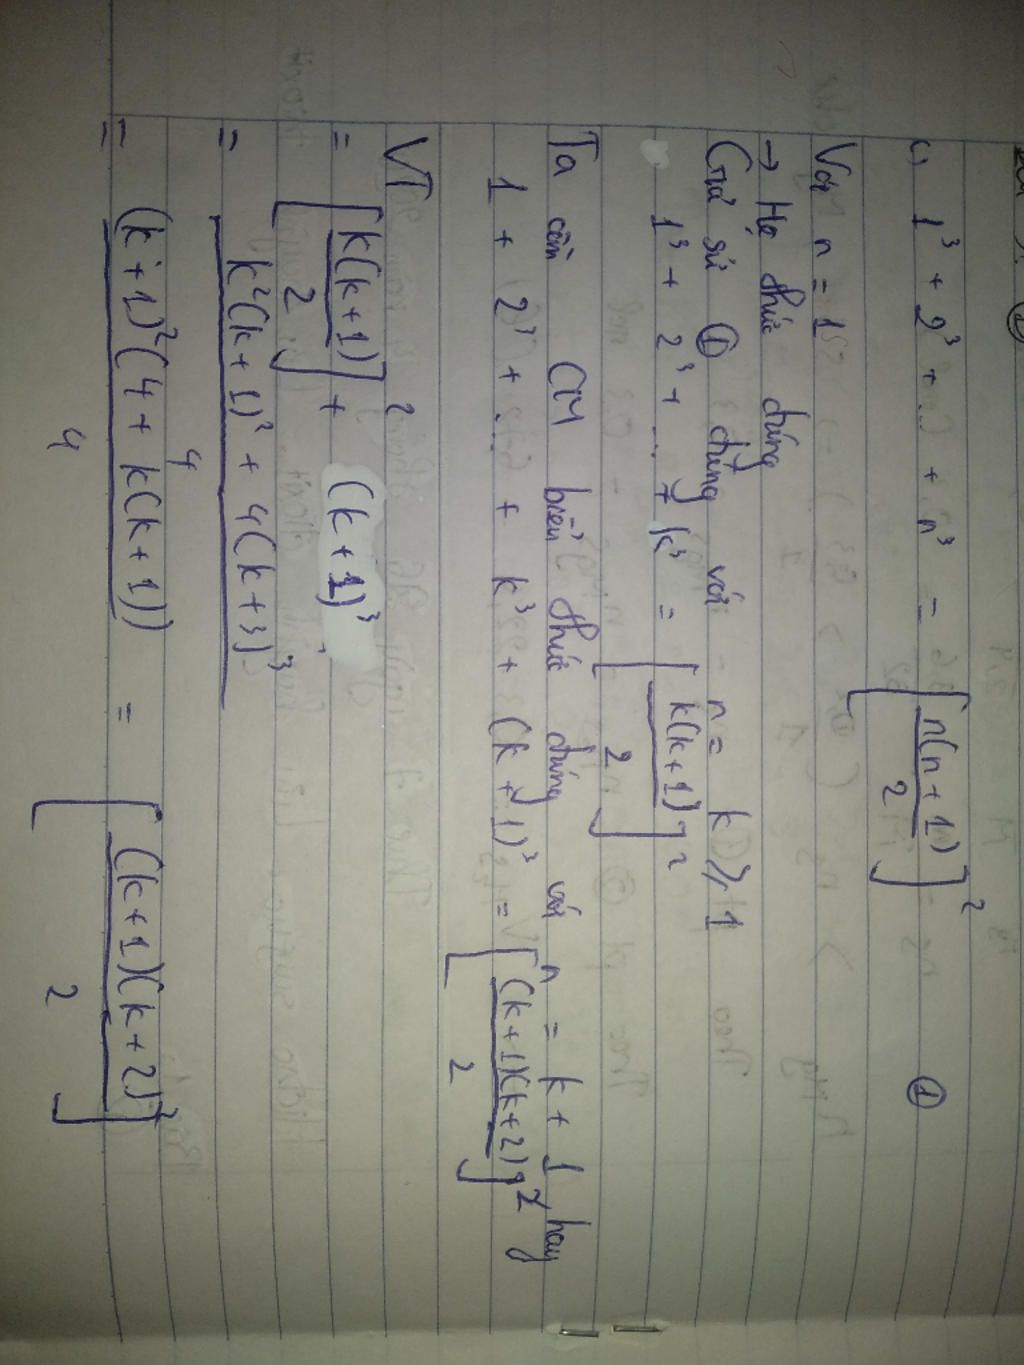 c, 1³ + 2³ + ... + n³ = [n(n+1)/2]² ①
Với n = 1
→ Hệ thức đúng
Giả sử ① đúng với n = k ⩾ 1
1³ + 2³ + ... + k³ = [k(k+1)/2]²
Ta cần CM biểu thức đúng với n = k + 1 hay
1 + 2³ + ... + k³ + (k+1)³ = [(k+1)(k+2)/2]²
VT
= [k(k+1)/2]² + (k+1)³
= k²(k+1)² + 4(k+3)³ / 4
= (k+1)²(4 + k(k+1)) / 4 = [(k+1)(k+2)/2]²